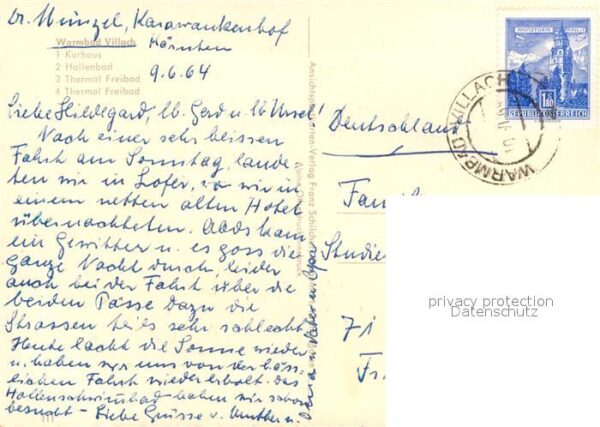 Dr. Münzel, Karawankenhof
Warmbad Villach Kärnten
1 Kurhaus
2 Hallenbad
3 Thermal Freibad
4 Thermal Freibad
9.6.64
Liebe Hildegard, lb. Gerd u. lb Ursel!
Nach einer sehr heissen
Fahrt am Sonntag, lande
ten wir in Lofer, wo wir in
einem netten alten Hotel
übernachteten. Abds kam
ein Gewitter u. es goss die
ganze Nacht durch, leider
auch bei der Fahrt über die
beiden Pässe dazu die
Strassen teils sehr schlecht
Heute lacht die Sonne wieder
u. haben wir uns von der häss-
lichen Fahrt wieder erholt. Das
Hallenschwimmbad haben wir schon
besucht – Liebe Grüsse v. Mutter u.
Vater u. Opa
Ansichtskarten-Verlag Franz Schilcher
Deutschland
Fam
Studie
71
Fr.
REPUBLIK ÖSTERREICH
1.80
WARMBAD VILLACH
privacy protection
Datenschutz